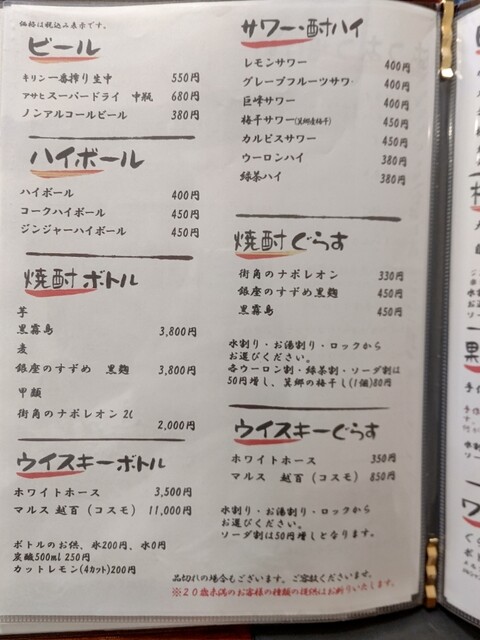 価格は税込み表示です。
ビール
キリン一番搾り生中 550円
アサヒスーパードライ 中瓶 680円
ノンアルコールビール 380円
ハイボール
ハイボール 400円
コークハイボール 450円
ジンジャーハイボール 450円
焼酎ボトル
芋
黒霧島 3,800円
麦
銀座のすずめ 黒麹 3,800円
甲類
街角のナポレオン 2ℓ
2,000円
ウイスキーボトル
ホワイトホース 3,500円
マルス 越百（コスモ） 11,000円
ボトルのお供、氷200円、水0円
炭酸500ml 250円
カットレモン(4カット)200円
サワー・酎ハイ
レモンサワー 400円
グレープフルーツサワー 400円
巨峰サワー 400円
梅干サワー(箕郷産梅干) 450円
カルピスサワー 450円
ウーロンハイ 380円
緑茶ハイ 380円
焼酎ぐらす
街角のナポレオン 330円
銀座のすずめ黒麹 450円
黒霧島 450円
水割り・お湯割り・ロックから
お選びください。
各ウーロン割・緑茶割・ソーダ割は
50円増し、箕郷の梅干し(1個)80円
ウイスキーぐらす
ホワイトホース 350円
マルス 越百（コスモ） 850円
水割り・お湯割り・ロックから
お選びください。
ソーダ割は50円増しとなります。
品切れの場合もございます。ご容赦くださいませ。
※２０歳未満のお客様の酒類の提供はお断りいたします。